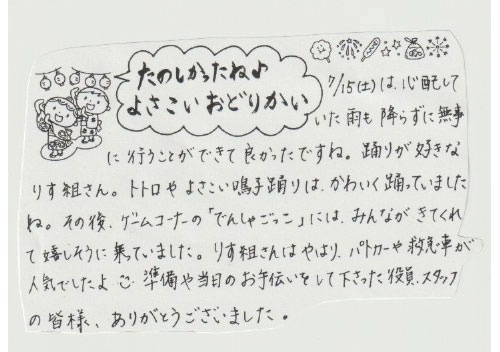 たのしかったね♪
よさこいおどりかい
7/15(土)は、心配して
いた雨も降らずに無事
に行うことができて良かったですね。踊りが好きな
りす組さん。トトロやよさこい鳴子踊りは、かわいく踊っていました
ね。その後、ゲームコーナーの「でんしゃごっこ」には、みんながきてくれ
て嬉しそうに乗っていました。りす組さんはやはり、パトカーや救急車が
人気でしたよ☺ 準備や当日のお手伝いをして下さった役員、スタッフ
の皆様、ありがとうございました。